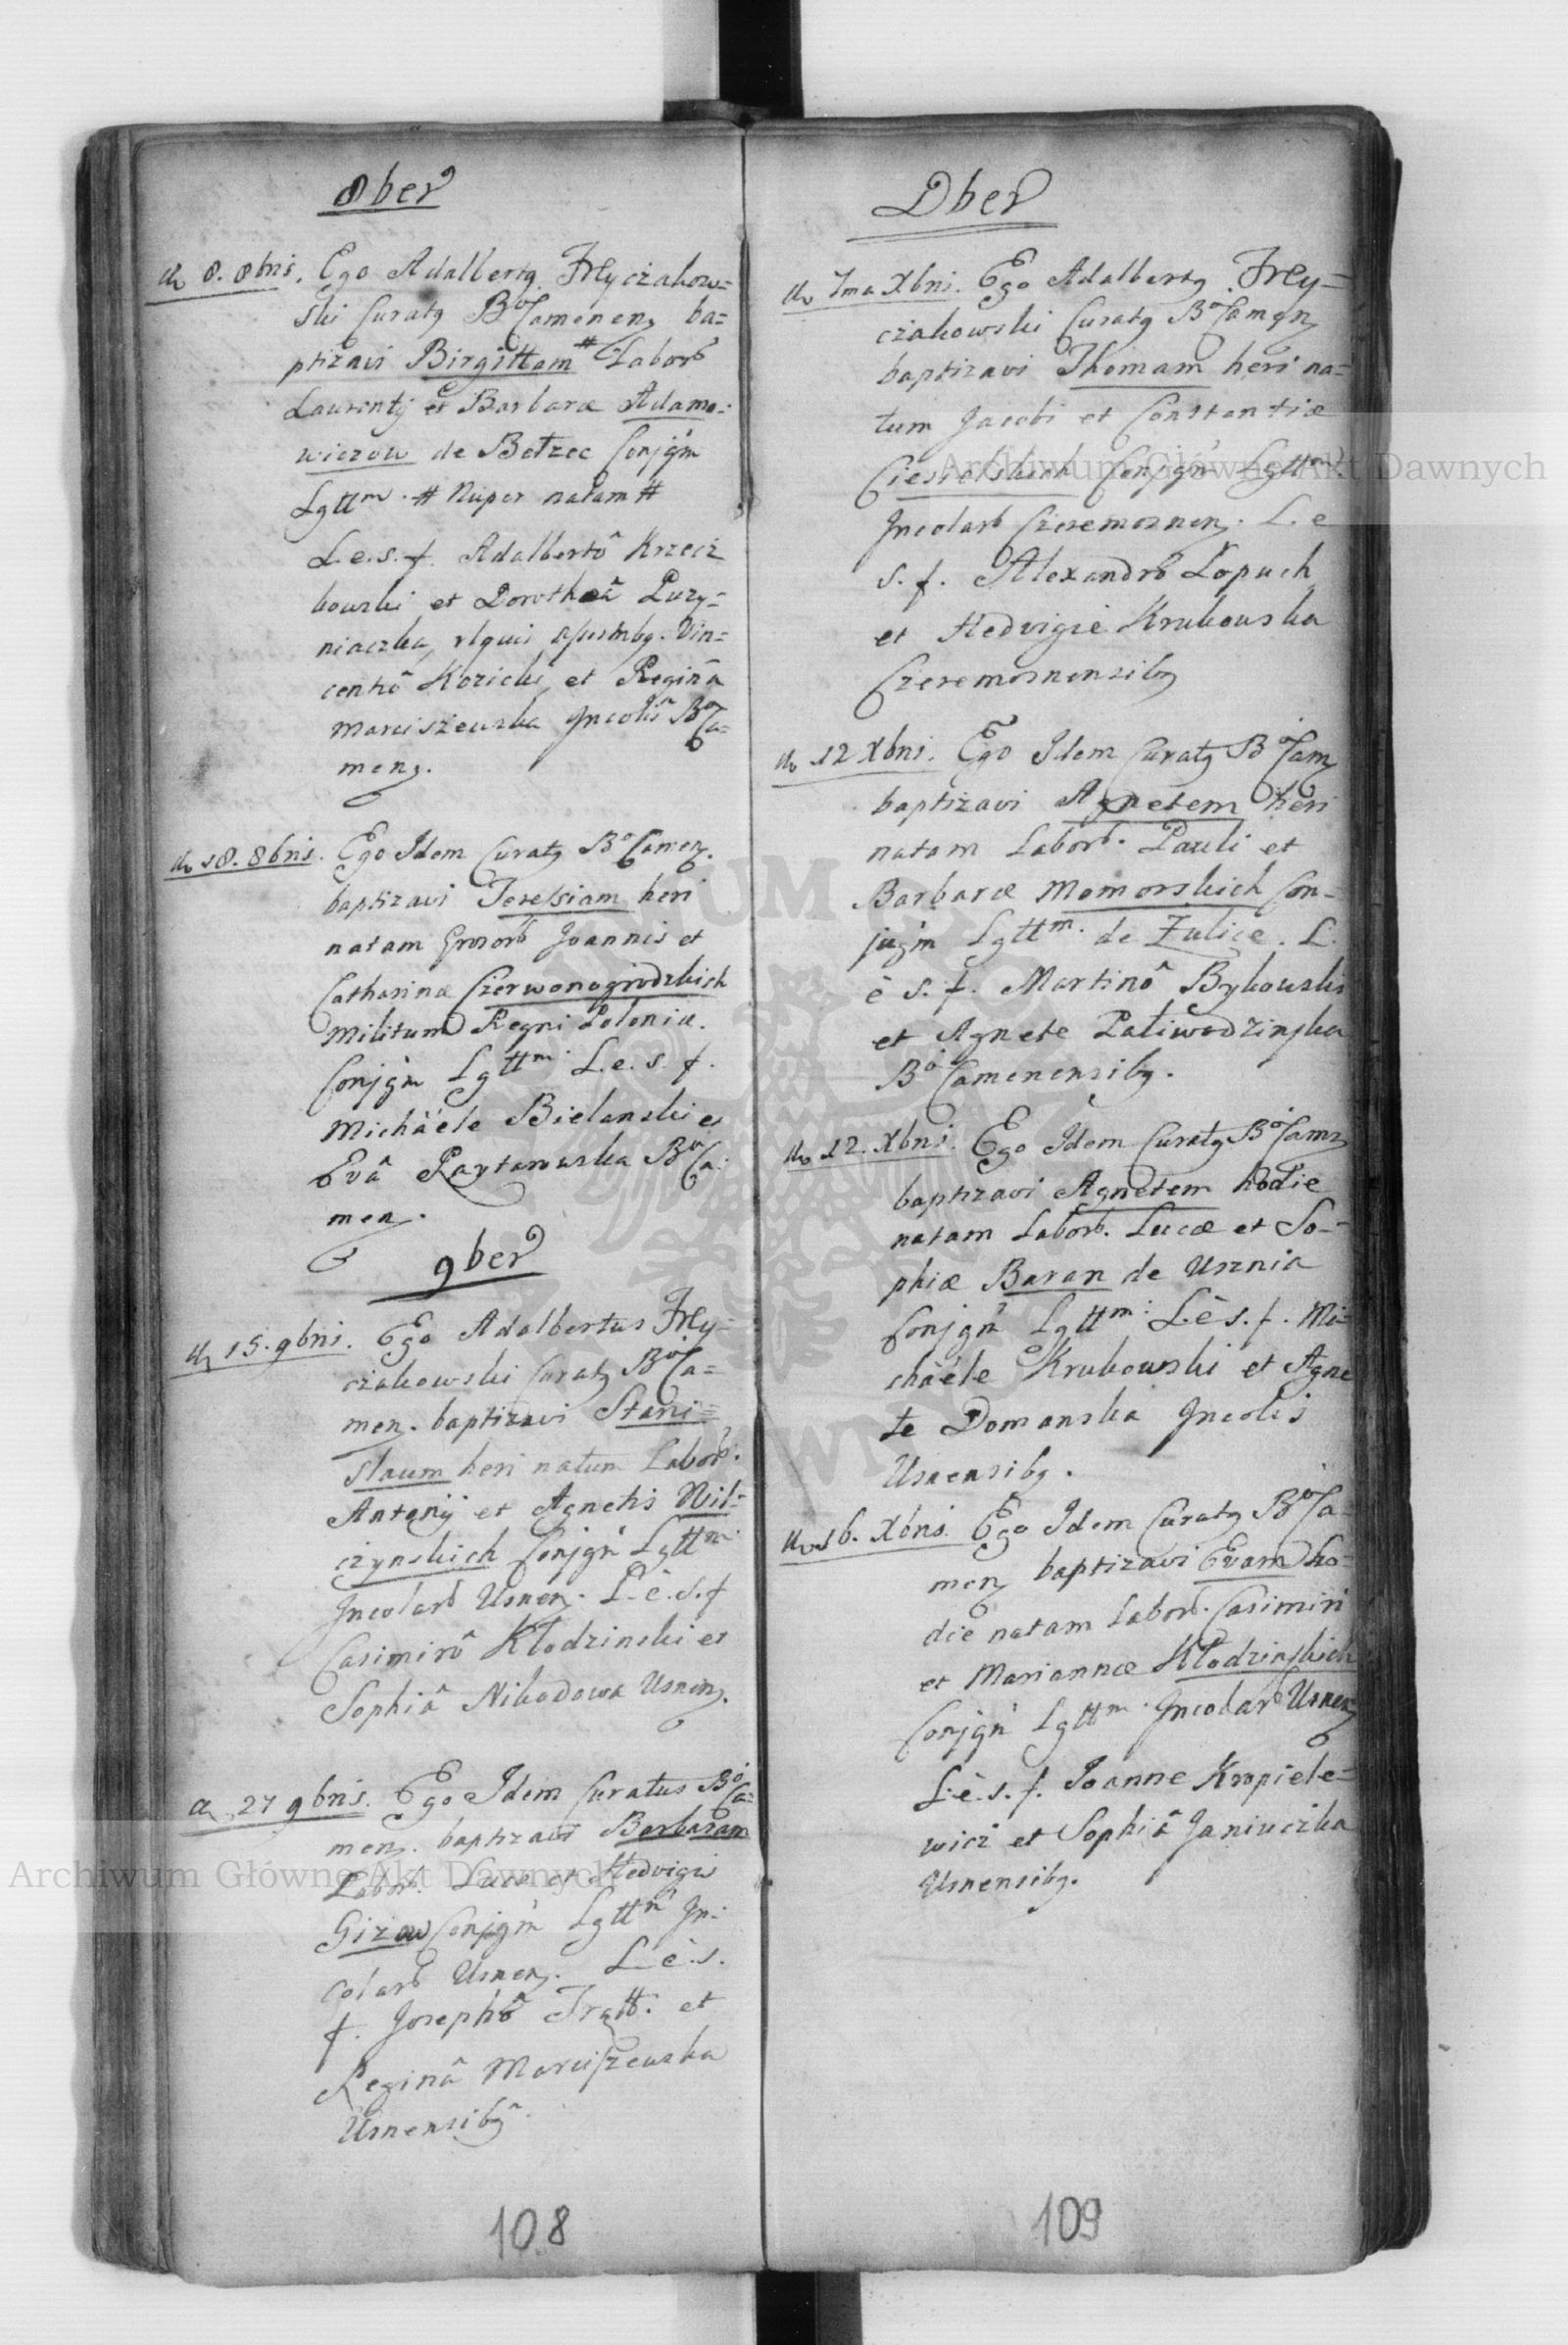 8ber
d. 8. 8bris. Ego Adalbertq Fryczakow=
ski Curatq Bo Camenenz ba=
ptizavi Birgittam # Labor
Laurentÿ et Barbaræ Adamo=
wiczow de Bełzec Conjgm
Lgttm. # Nuper natam #
L.e.s.f. Adalbertô Krzecz
kowski et Dorotheâ Puzy=
niaczka, Vin=
centiô Kozicki et Reginâ
Marciszewska Incolis Bo Ca=
menz.
d. 18. 8bris. Ego Idem Curatq Bo Camenz.
baptizavi Teressiam heri
natam Joannis et
Catharinæ Czerwonogrodzkich
Militum Regni Poloniæ.
Conjgm Lgttm. L.e.s.f.
Michäele Bielanski et
Evâ Raytarowska Bo Ca=
menz.
9ber
d. 15. 9bris. Ego Adalbertus Fry=
czakowski Curatq Bo Ca=
menz. baptizavi Stani=
slaum heri natum Labor.
Antonÿ et Agnetis Nil=
czynskich Conjgm Lgttm.
Incolar Usnenz. L.è.s.f
Casimirô Kłodzinski et
Sophiâ Nikodowa Usnenz.
d. 27 9bris. Ego Idem Curatus Bo Ca=
menz. baptizavi Barbaram
Labor. Lucæ et Hedvigis
Gizow Conjgm Lgttm In=
colar Usnenz. L.è.s.
f. Josephô et
Reginâ Marciszewska
Usnensibq.
108
Dber
d. 7ma Xbris. Ego Adalbertq Fry=
czakowski Curatq Bo Camenz
baptizavi Thomam heri na=
tum Jacobi et Constantiæ
Conjgm Lgttm.
Incolar Czeremosnenz. L.e
s.f. Alexandrô Łopuch
et Hedvigie Krukowska
Czeremosnensibq
d. 12 Xbris. Ego Idem Curatq Bo Camz
baptizavi Agnetem heri
natam Labor. Pauli et
Barbaræ Momorskich Con=
jugm Lgttm. de Żulice. L.
è s.f. Martinô Bykowski
et Agnete Paliwodzinska
Bo Camenensibq.
d. 12. Xbris. Ego Idem Curatq Bo Camz
baptizavi Agnetem hodie
natam Labor. Lucæ et So=
phiæ Baran de Usznia
Conjgm Lgttm: L.è s.f. Mi=
chäele Krukowski et Agne
te Domanska Incolis
Usnensibq.
d. 16. Xbris. Ego Idem Curatq Bo Ca=
menz baptizavi Evam ho=
die natam Labor. Casimiri
et Mariannæ Kłodzinskich
Conjgm Lgttm. Incolar Usnenz
L.è.s.f. Joanne Kropiele=
wicz et Sophiâ Janiuczka
Usnensibq.
109
Archiwum Główne Akt Dawnych
Archiwum Główne Akt Dawnych